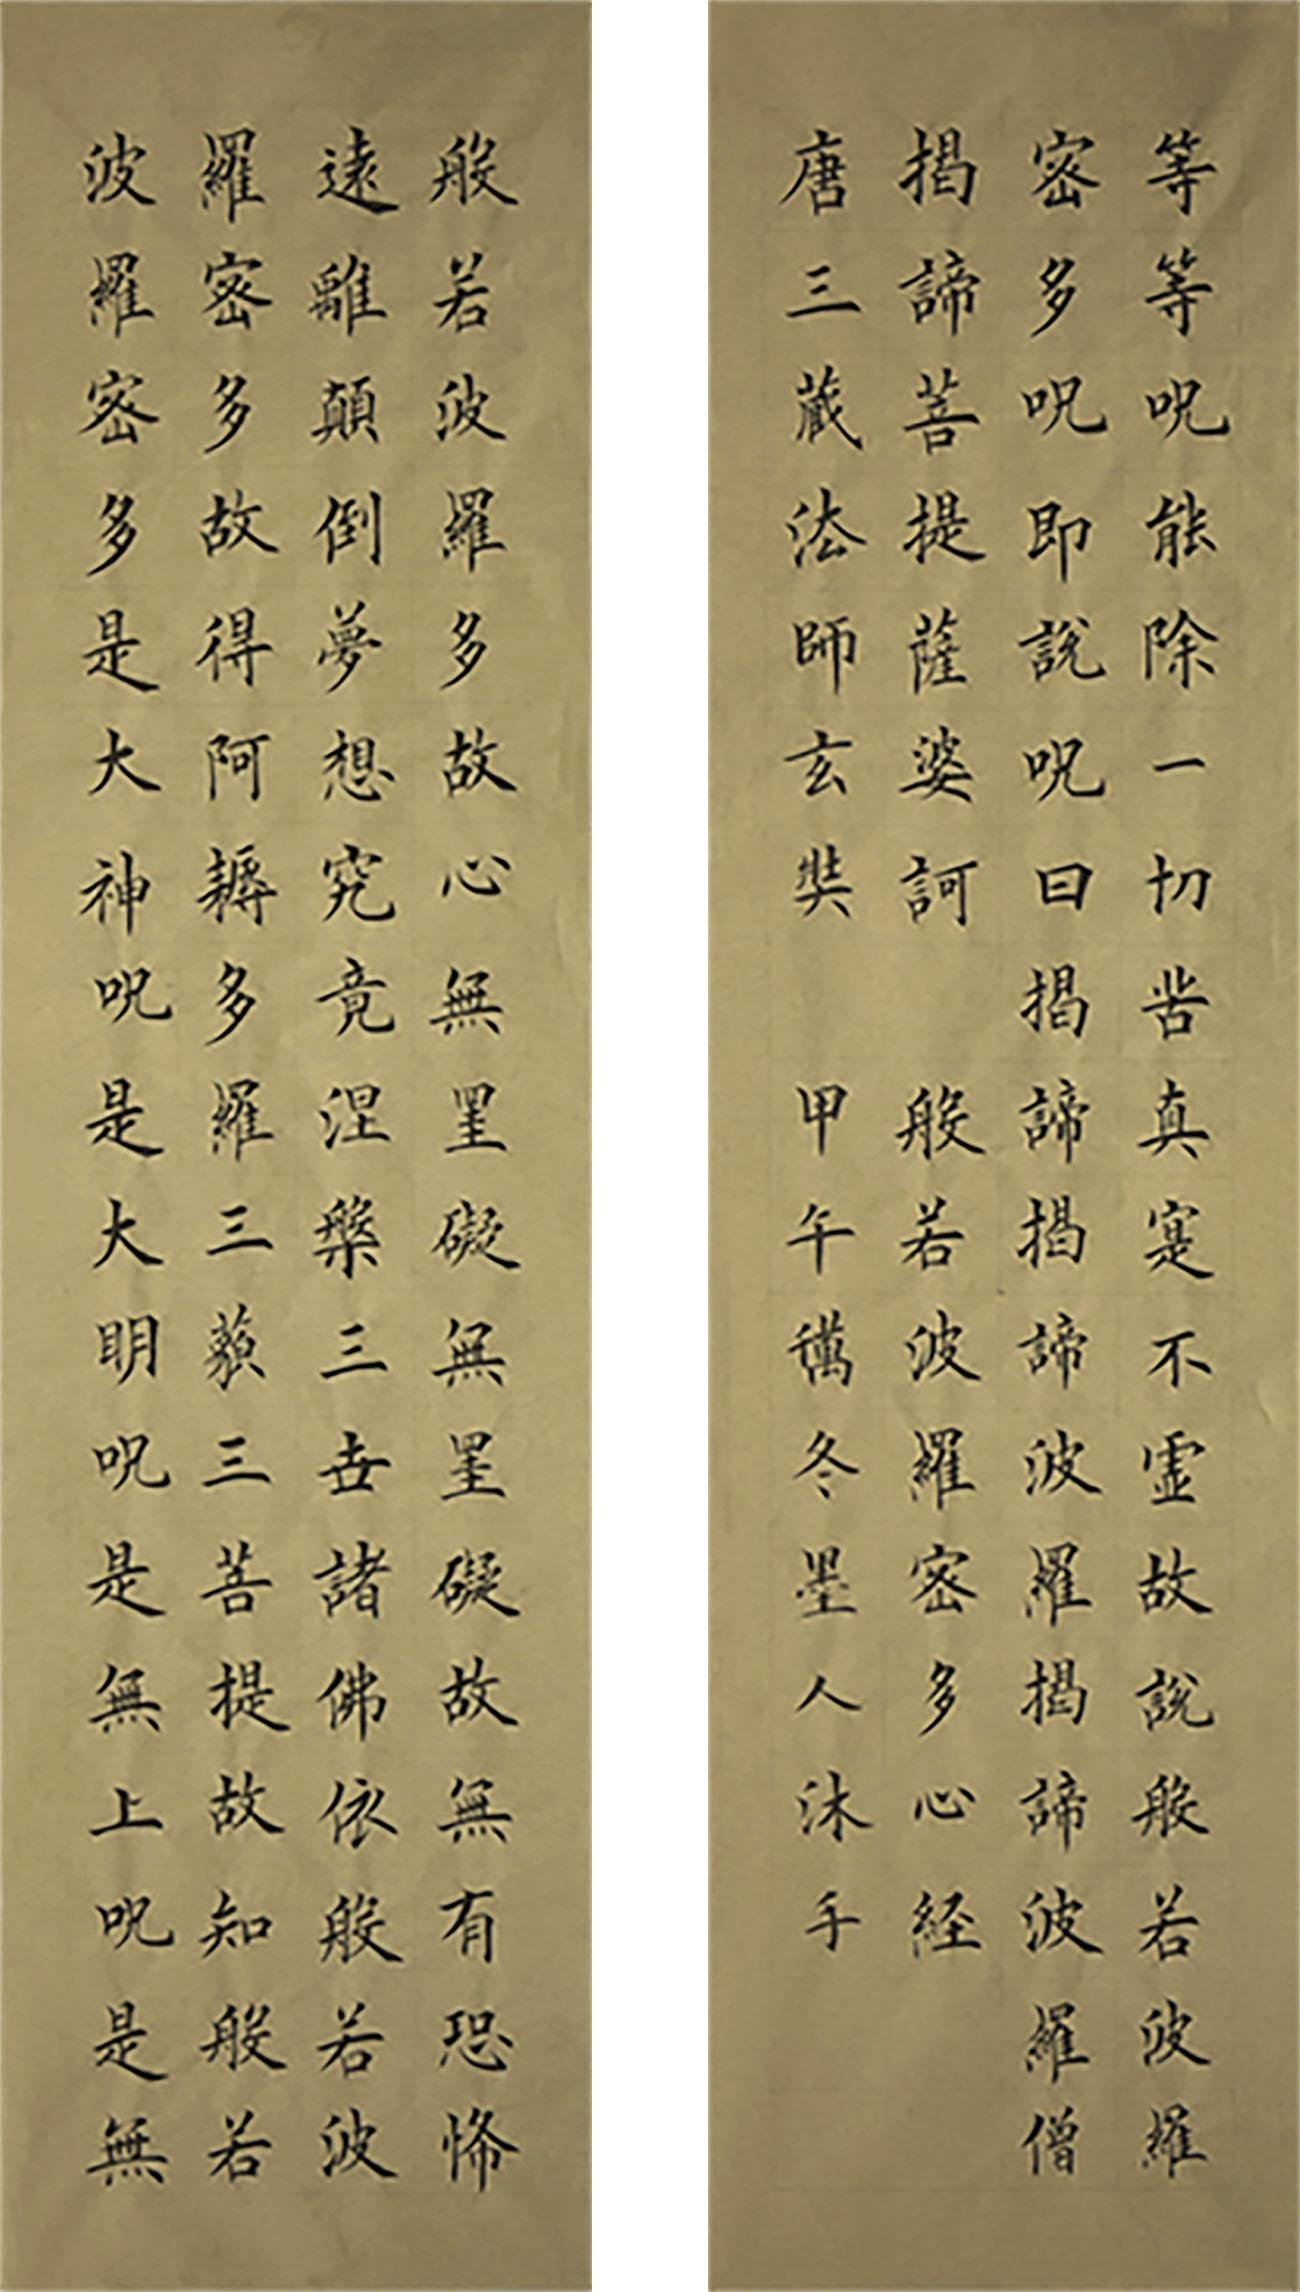 般若波羅多故心無罣礙無罣礙故無有恐怖
遠離顛倒夢想究竟涅槃三世諸佛依般若波
羅密多故得阿耨多羅三藐三菩提故知般若
波羅密多是大神呪是大明呪是無上呪是無
等等呪能除一切苦真寔不虛故說般若波羅
密多呪即說呪曰揭諦揭諦波羅揭諦波羅僧
揭諦菩提薩婆訶 般若波羅密多心経
唐三藏法師玄奘 甲午冬墨人沐手